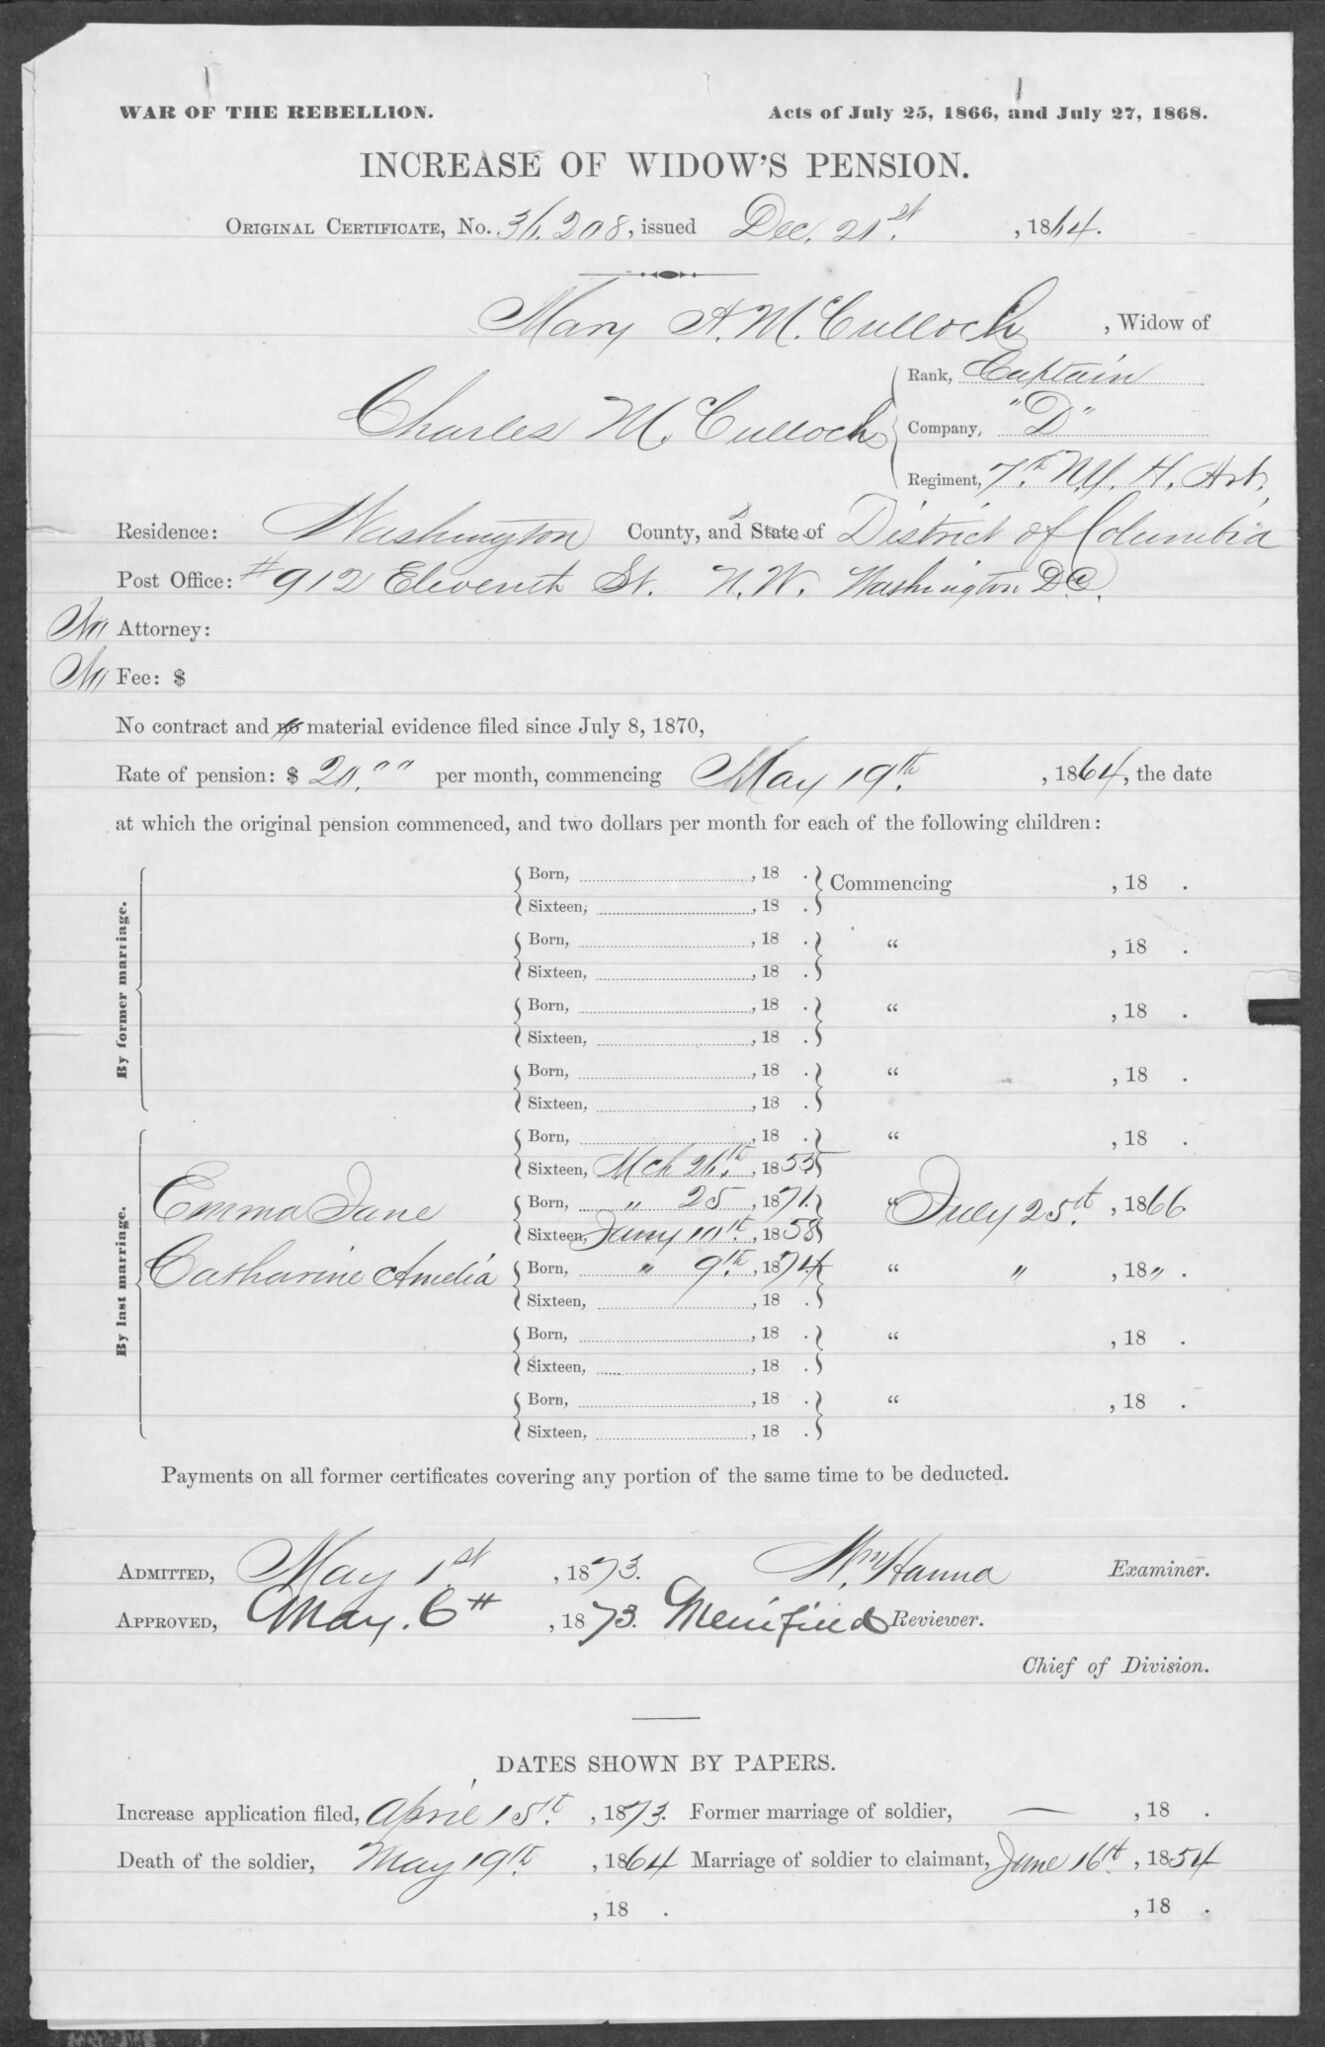 WAR OF THE REBELLION. Acts of July 25, 1866, and July 27, 1868.
INCREASE OF WIDOW'S PENSION.
ORIGINAL CERTIFICATE, No. 36.208, issued Dec. 21st. , 1864.
Mary A. McCulloch , Widow of
Charles McCulloch
Rank, Captain
Company, "D"
Regiment, 7th. N.Y. H. Art.
Residence: Washington County, and State of District of Columbia
Post Office: # 912 Eleventh St. N.W. Washington D.C.
No Attorney:
No Fee: $
No contract and no material evidence filed since July 8, 1870,
Rate of pension: $ 20.00 per month, commencing May 19th. , 1864, the date
at which the original pension commenced, and two dollars per month for each of the following children:
By former marriage.
Born, , 18 . Commencing , 18 .
Sixteen, , 18 .
Born, , 18 . " , 18 .
Sixteen, , 18 .
Born, , 18 . " , 18 .
Sixteen, , 18 .
Born, , 18 . " , 18 .
Sixteen, , 18 .
By last marriage.
Born, , 18 . " , 18 .
Sixteen, Mch 26th. , 1855
Emma Jane Born, " 25 , 1871. " July 25th. , 1866
Sixteen, Jany 10th. , 1858
Catharine Amelia Born, " 9th. , 1874 " " , 18 " .
Sixteen, , 18 .
Born, , 18 . " , 18 .
Sixteen, , 18 .
Born, , 18 . " , 18 .
Sixteen, , 18 .
Payments on all former certificates covering any portion of the same time to be deducted.
ADMITTED, May 1st , 1873. Wm. Hanna Examiner.
APPROVED, May. 6th , 1873. Merrifield Reviewer.
Chief of Division.
DATES SHOWN BY PAPERS.
Increase application filed, April 15th. , 1873. Former marriage of soldier, — , 18 .
Death of the soldier, May 19th. , 1864 Marriage of soldier to claimant, June 16th , 1854
, 18 . , 18 .